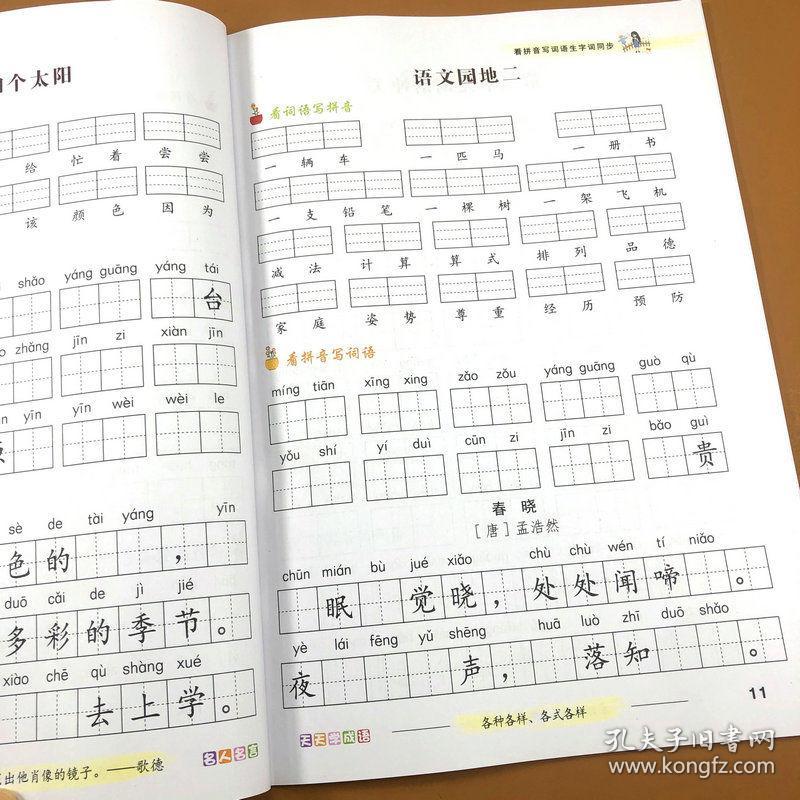 个太阳
给 忙着 尝尝
该 颜色 因为
shǎo yáng guāng yáng tái
台
zhǎng jīn zi xiàn jīn
yīn yīn wèi wèi le
sè de tài yáng yīn
色的 ，
duō cǎi de jì jié
多彩的季节。
xiào chē qù shàng xué
去上学。
出他肖像的镜子。——歌德
名人名言
看拼音写词语生字词同步
语文园地二
看词语写拼音
一辆车 一匹马 一册书
一支铅笔 一棵树 一架飞机
减法 计算 算式 排列 品德
家庭 姿势 尊重 经历 预防
看拼音写词语
míng tiān xīng xing zǎo zǒu yáng guāng guò qù
yǒu shí yí duì cūn zi jīn zi bǎo guì
贵
春晓
[唐]孟浩然
chūn mián bù jué xiǎo chù chù wén tí niǎo
眠 觉晓，处处闻啼 。
yè lái fēng yǔ shēng huā luò zhī duō shǎo
夜 声， 落知 。
天天学成语
各种各样、各式各样
11
孔夫子旧书网
www.kongfz.com